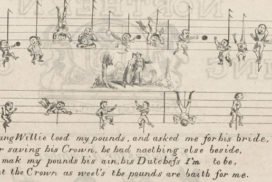 ung Willie loed my pounds, and asked me for his bride,
r saving his Crown, he had naething else beside,
mak my pounds his ain, his Dutchess I'm to be,
t the Crown as weel's the pounds are baith for me.